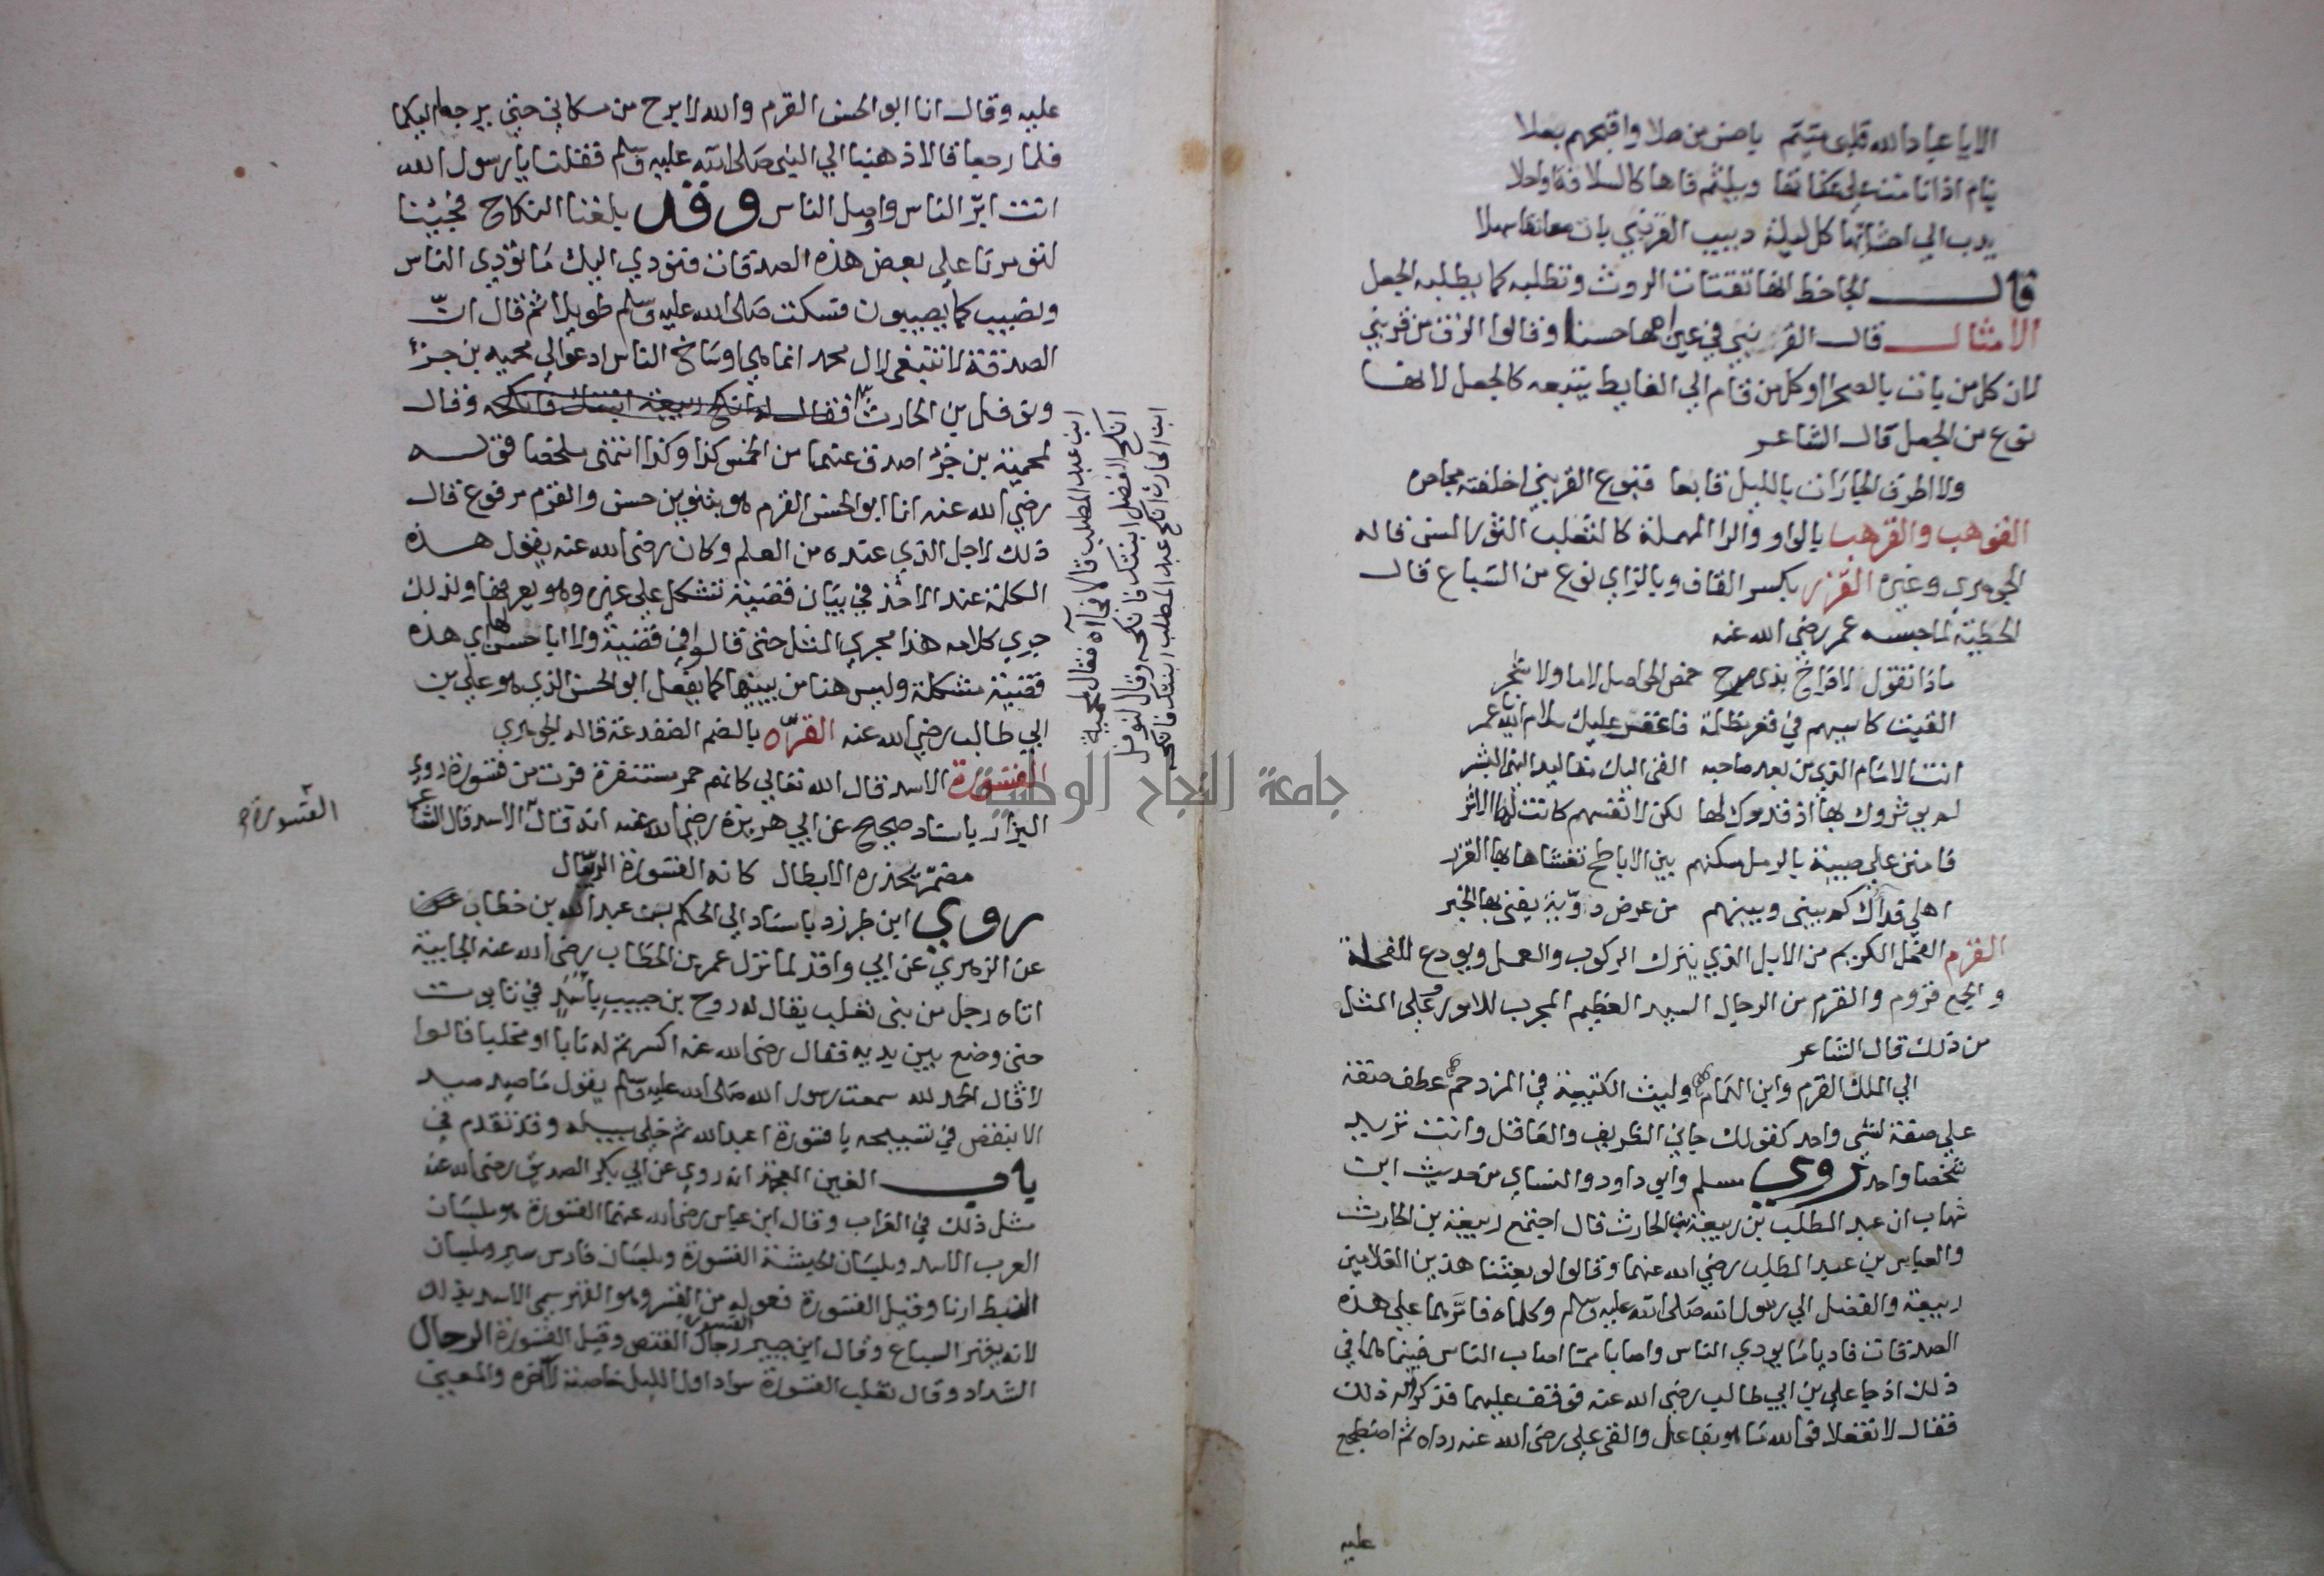 الا يا عباد الله قلبي متيم باحسن من صلا واقبحهم بعلا
ينام اذا نامت على عكناتها ويلثم فاها كالسلافة او احلا
يدب الى احشائها كل ليلة دبيب القرنبي بات معانقا سهلا
قال الجاحظ انها تقتات الروث وتطلبه كما يطلبه الجعل
الامثال قال القرنبي في عين امها حسنا وقالوا الزق من قرنبي
لان كل من بات بالصحرا وكل من قام الى الغايط يتبعه كالجعل لانها
نوع من الجعل قال الشاعر
ولا اطرق الجارات بالليل قابعا قبوع القرنبي اخلفته مجاحره
القوهب والقرهب بالواو والرا المهملة كالثعلب الثور المسن قاله
الجوهري وغيره القزر بكسر القاف وبالزاي نوع من السباع قال
الحطية لما حبسه عمر رضي الله عنه
ماذا تقول لافراخ بذي مرخ حمض الحواصل لا ما ولا شجر
القيت كاسبهم في قعر مظلمة فاغفر عليك سلام الله يا عمر
انت الامام الذي من بعد صاحبه القى اليك مقاليد النهى البشر
لم يوثروك بها اذ قدموك لها لكن لانفسهم كانت لها الاثر
فامنن على صبية بالرمل مسكنهم بين الاباطح تغشاها بها القزر
اهلي فداك كم بيني وبينهم من عرض داوية يفنى بها الخبر
القرم الفحل الكريم من الابل الذي يترك الركوب والعمل ويودع للفحلة
والجمع قروم والقرم من الرجال السيد العظيم المجرب للامور وعلى المثل
من ذلك قال الشاعر
الى الملك القرم وابن الهمام وليث الكتيبة في المزدحم عطف صفة
على صفة لشي واحد كقولك جاني الظريف والعاقل وانت تريد
شخصا واحد روي مسلم وابو داود والنساي من حديث ابن
شهاب ان عبد المطلب بن ربيعة بن الحارث قال اجتمع ربيعة بن الحارث
والعباس بن عبد المطلب رضي الله عنهما وقالوا لو بعثنا هذين الغلامين
ربيعة والفضل الى رسول الله صلى الله عليه وسلم وكلماه فامرهما على هذه
الصدقات فاديا ما يودي الناس واصابا مما اصاب الناس فبينما هما في
ذلك اذ جا علي بن ابي طالب رضي الله عنه فوقف عليهما فذكرا له ذلك
فقال لا تفعلا فوالله ما هو بفاعل والقى علي رضي الله عنه رداه ثم اضطجع
عليه
عليه وقال انا ابو الحسن القرم والله لا ابرح من مكاني حتى يرجع اليكما
فلما رجعا قالا ذهبنا الى النبي صلى الله عليه وسلم فقلنا يا رسول الله
انت ابر الناس واوصل الناس وقد بلغنا النكاح فجينا
لتومرنا على بعض هذه الصدقات فنودي اليك ما تودي الناس
ونصيب كما يصيبون فسكت صلى الله عليه وسلم طويلا ثم قال ان
الصدقة لا تنبغي لال محمد انما هي اوساخ الناس ادعوا لي محمية بن جزء
ونوفل بن الحارث فقال له انكح ربيعة ابنتك فانكحه وقال
لمحمية بن جزء اصدق عنهما من الخمس كذا وكذا انتهى ملخصا فقوله
رضي الله عنه انا ابو الحسن القرم هو بتنوين حسن والقرم مرفوع قال
ذلك لاجل الذي عنده من العلم وكان رضي الله عنه يقول هذه
الكلمة عند الاخذ في بيان قضية تشكل على غيره وهو يعرفها ولذلك
جرى كلامه هذا مجرى المثل حتى قالوا في قضية ولا ابا حسن لها اي هذه
قضية مشكلة وليس هنا من يبينها كما يفعل ابو الحسن الذي هو علي بن
ابي طالب رضي الله عنه القره بالضم الضفدعة قاله الجوهري
القسورة الاسد قال الله تعالى كانهم حمر مستنفرة فرت من قسورة روى
البزار باسناد صحيح عن ابي هريرة رضي الله عنه انه قال الاسد قال الشاعر
مضمر يحذره الابطال كانه القسورة الريبال
روي ابن طبرزد باسناده الى الحكم بن عبد الله بن خطاب
عن الزهري عن ابي واقد لما نزل عمر بن الخطاب رضي الله عنه الجابية
اتاه رجل من بني تغلب يقال له روح بن حبيب باسد في تابوت
حتى وضع بين يديه فقال رضي الله عنه اكسرتم له نابا او مخلبا قالوا
لا قال الحمد لله سمعت رسول الله صلى الله عليه وسلم يقول ما صيد صيد
الا بنقص في تسبيحه يا قسورة اعبد الله ثم خلى سبيله وقد تقدم في
باب الغين المعجمة انه روي عن ابي بكر الصديق رضي الله عنه
مثل ذلك في الغراب وقال ابن عباس رضي الله عنهما القسورة هو بلسان
العرب الاسد وبلسان الحبشة القسورة وبلسان فارس سير وبلسان
النبط اريا وقيل القسورة فعوله من القسر وهو القهر سمي الاسد بذلك
لانه يقهر السباع وقال ابن جبير القسورة رجال القنص وقيل القسورة الرجال
الشداد وقال ثعلب القسورة سواد اول الليل خاصة لا اخره والمعنى
ابن عبد المطلب قالا فجاآه فقال لمحمية
انكح الفضل ابنتك فانكحه وقال لنوفل
ابن الحارث انكح عبد المطلب ابنتك فانكحه
القسورة
جامعة النجاح الوطنية